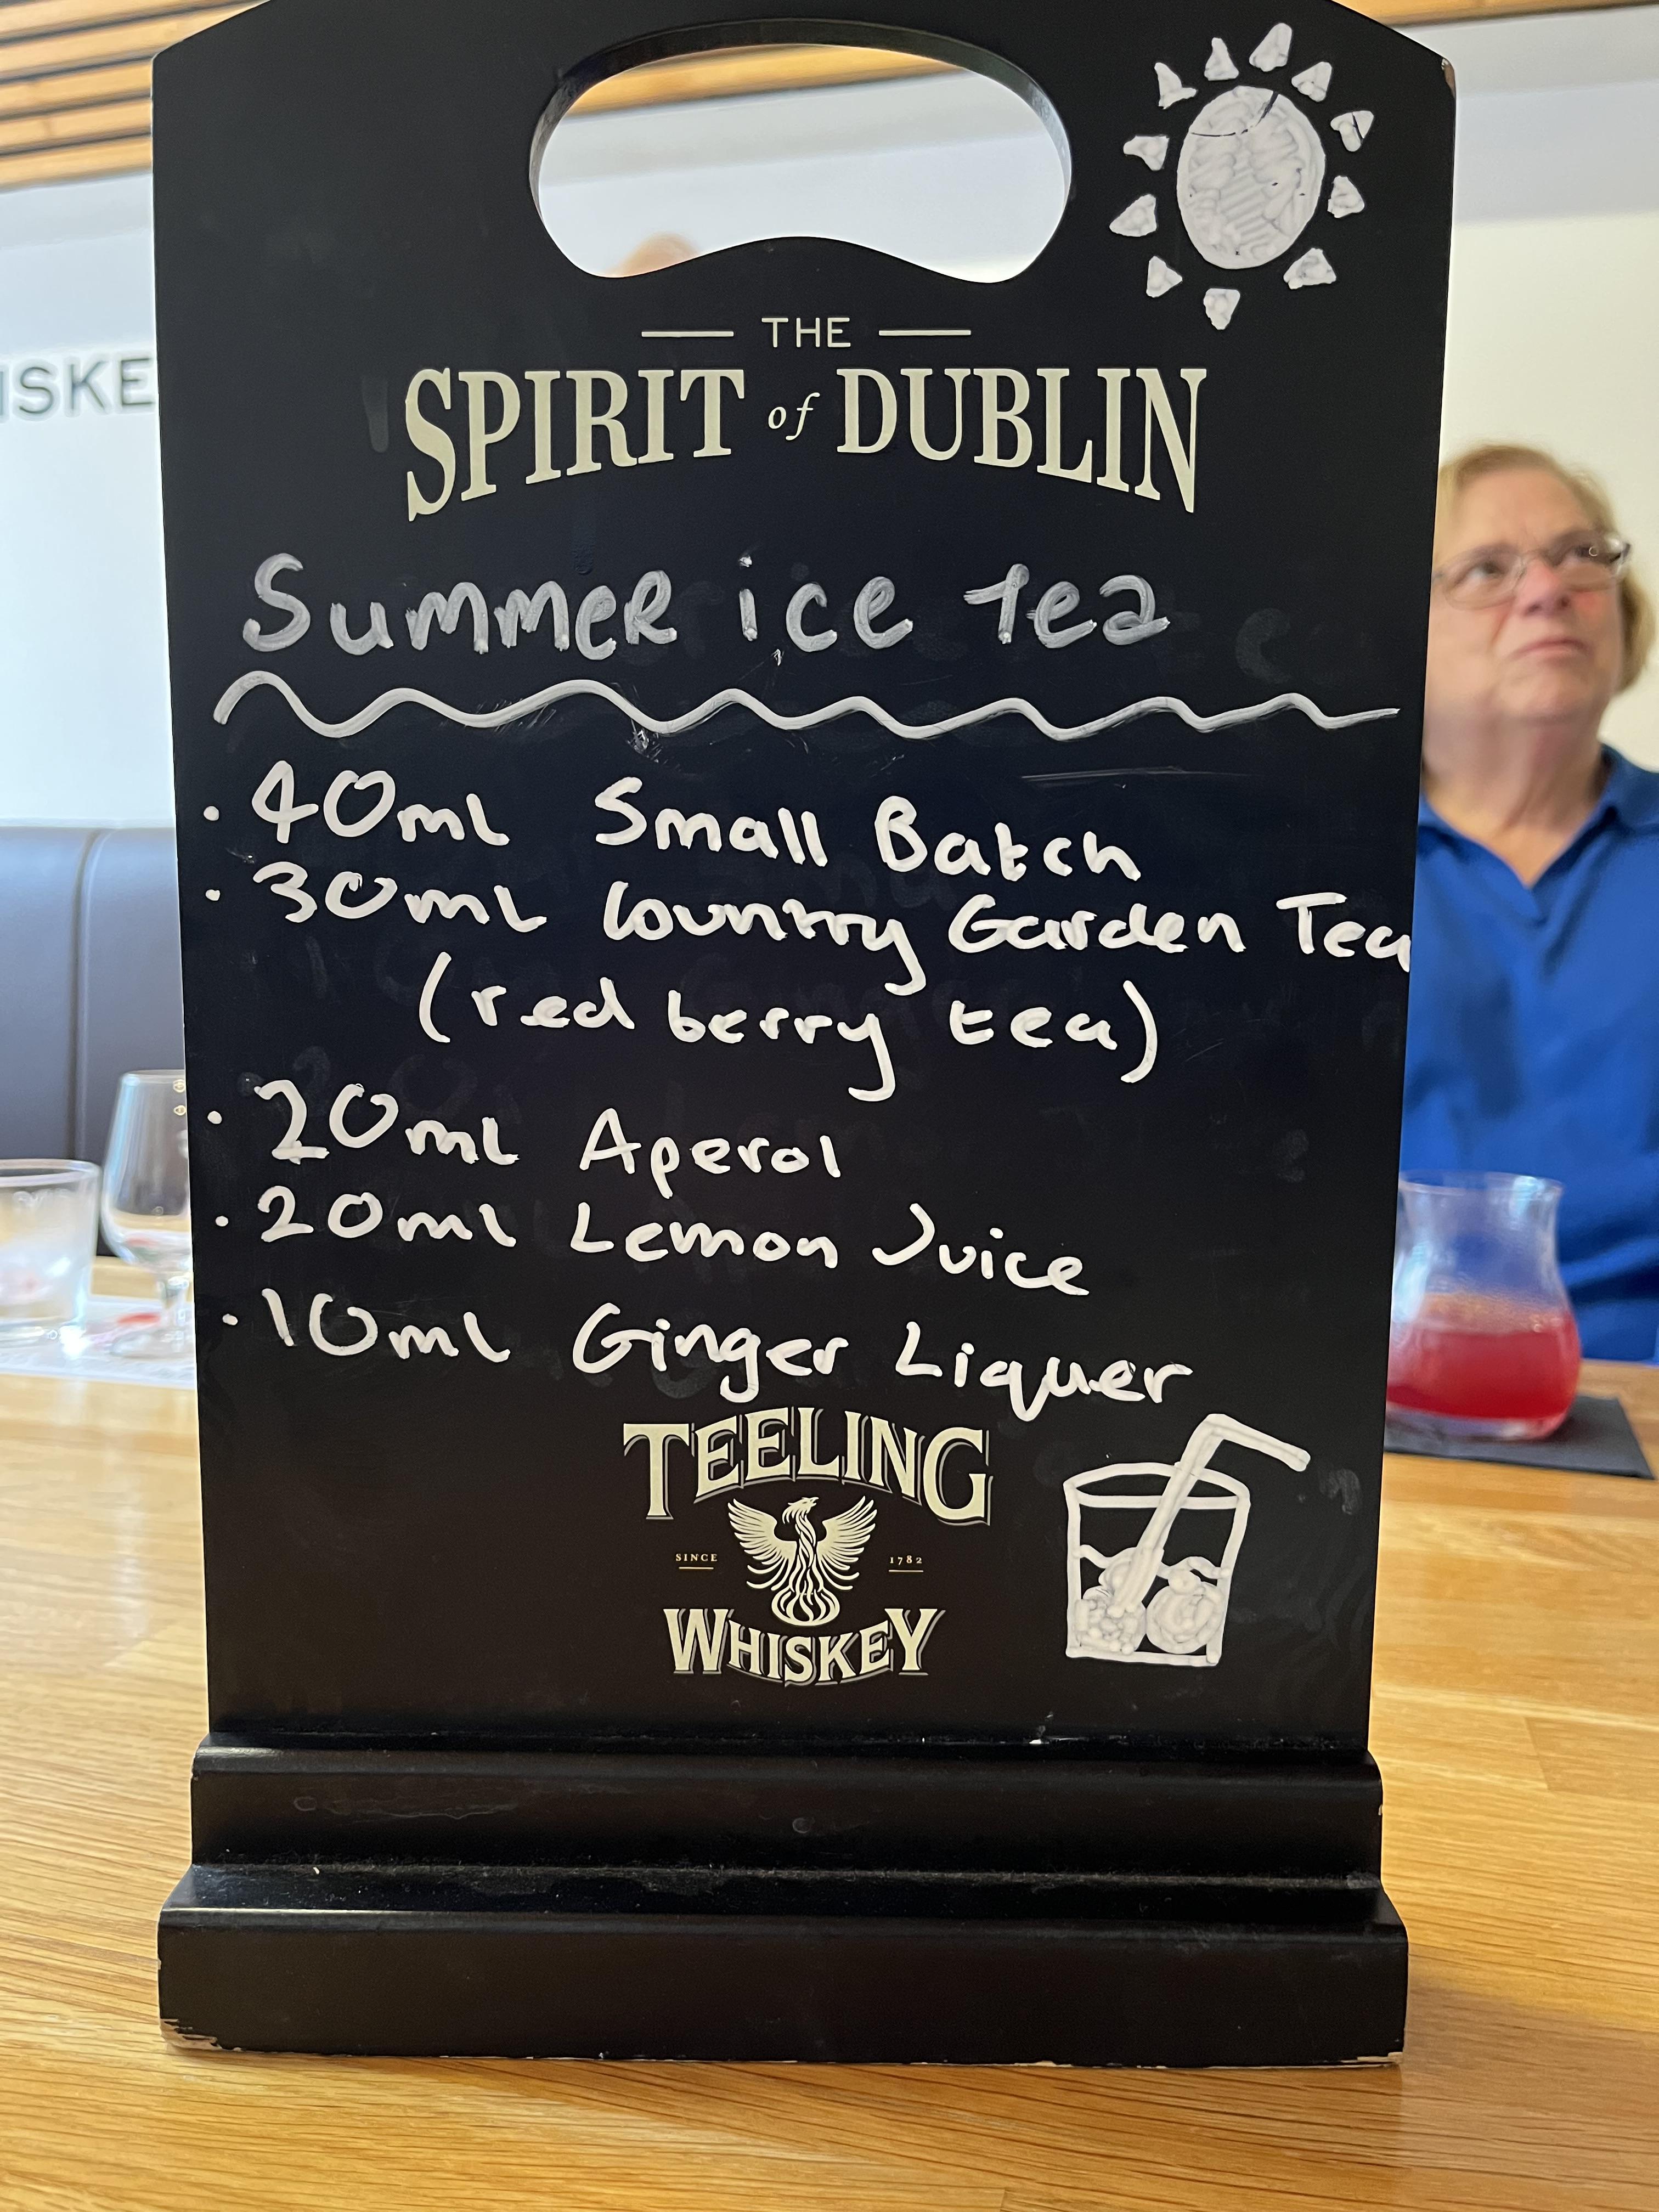 THE
SPIRIT of DUBLIN
ISKE
Summer ice Tea
• 40ml Small Batch
• 30ml Country Garden Tea
(red berry tea)
• 20ml Aperol
• 20ml Lemon Juice
• 10ml Ginger Liquer
TEELING
SINCE 1782
WHISKEY